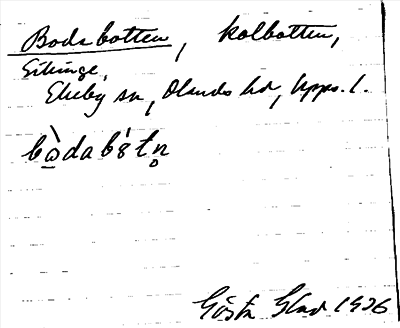 Bodabotten, kolbotten,
Sitinge,
Ekeby sn, Olands hd, Upps. l.
bὼdabɞ́tn̥
Gösta Glad 1926